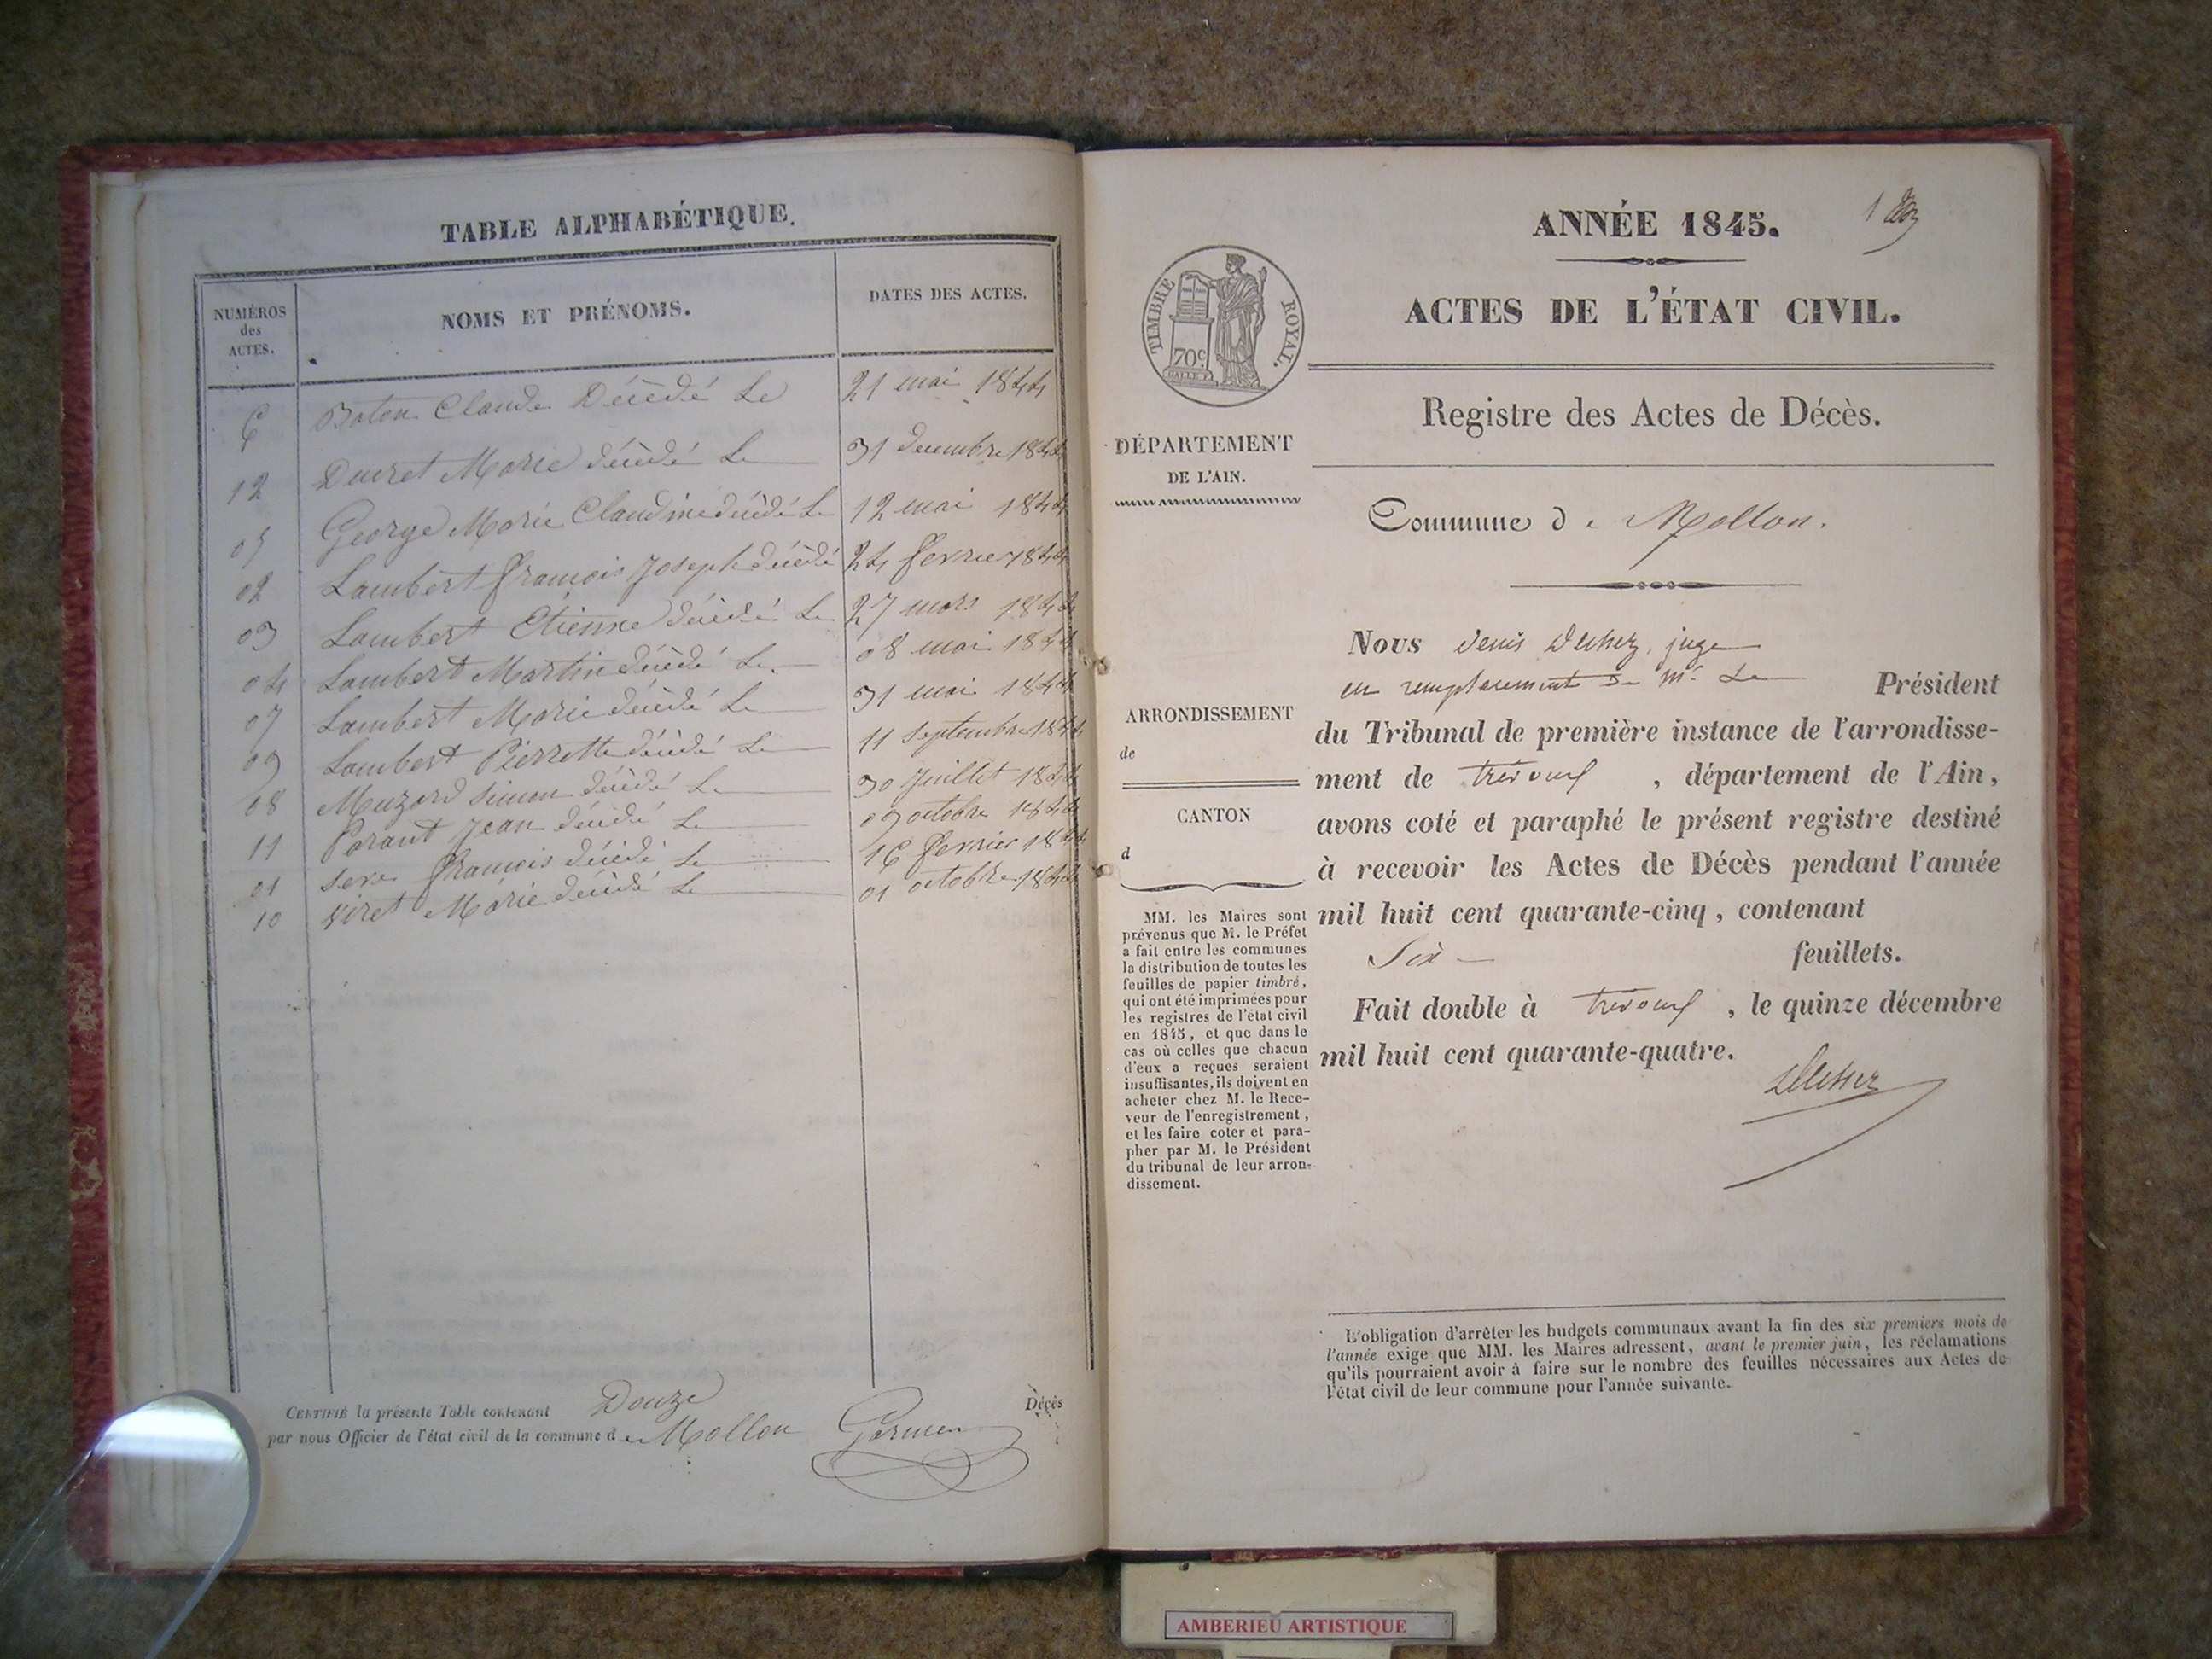 TABLE ALPHABÉTIQUE.
NUMÉROS des ACTES. NOMS ET PRÉNOMS. DATES DES ACTES.
6 Baton Claude Décédé Le 21 mai 1844
12 Ducret Marie décédé Le 31 decembre 1844
05 George Marie Claudine décédé Le 12 mai 1844
02 Lambert François Joseph décédé 24 fevrier 1844
03 Lambert Etienne décédé Le 27 mars 1844
04 Lambert Martin décédé Le 08 mai 1844
07 Lambert Marie décédé Le 31 mai 1844
09 Lambert Pierrette décédé Le 11 Septembre 1844
08 Muzard Simon décédé Le 30 Juillet 1844
11 Parant Jean décédé Le 09 octobre 1844
01 François décédé Le 16 fevrier 1844
10 Viret Marie décédé Le 01 octobre 1844
CERTIFIÉ la présente Table contenant Douze Décès
par nous Officier de l'état civil de la commune de Mollon
ANNÉE 1845.
1
ACTES DE L'ÉTAT CIVIL.
TIMBRE ROYAL.
70c
Registre des Actes de Décès.
DÉPARTEMENT
DE L'AIN.
Commune de Mollon.
ARRONDISSEMENT
de
CANTON
d
MM. les Maires sont
prévenus que M. le Préfet
a fait entre les communes
la distribution de toutes les
feuilles de papier timbré,
qui ont été imprimées pour
les registres de l'état civil
en 1845, et que dans le
cas où celles que chacun
d'eux a reçues seraient
insuffisantes, ils doivent en
acheter chez M. le Rece-
veur de l'enregistrement,
et les faire coter et para-
pher par M. le Président
du tribunal de leur arron-
dissement.
Nous Denis juge
en remplacement de Mr. Le Président
du Tribunal de première instance de l'arrondisse-
ment de trévoux, département de l'Ain,
avons coté et paraphé le présent registre destiné
à recevoir les Actes de Décès pendant l'année
mil huit cent quarante-cinq, contenant
Six feuillets.
Fait double à trévoux, le quinze décembre
mil huit cent quarante-quatre.
L'obligation d'arrêter les budgets communaux avant la fin des six premiers mois de
l'année exige que MM. les Maires adressent, avant le premier juin, les réclamations
qu'ils pourraient avoir à faire sur le nombre des feuilles nécessaires aux Actes de
l'état civil de leur commune pour l'année suivante.
AMBERIEU ARTISTIQUE